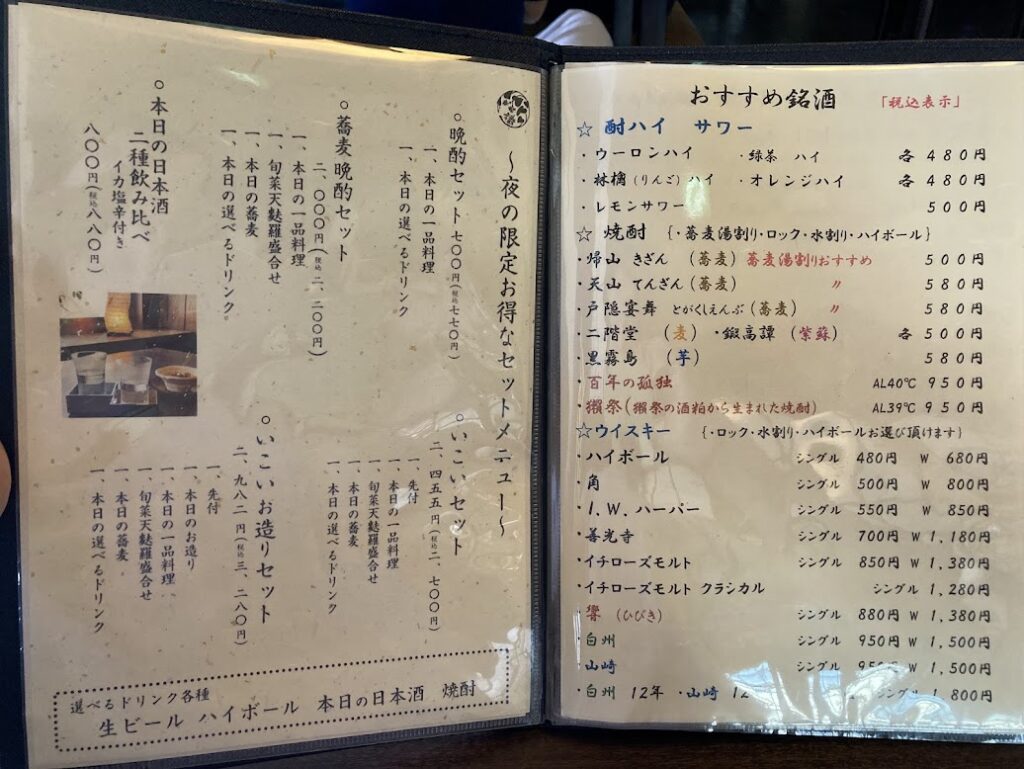 ～夜の限定お得なセットメニュー～
○晩酌セット 七〇〇円(税込七七〇円)
一、本日の一品料理
一、本日の選べるドリンク。
○蕎麦晩酌セット
二、〇〇〇円(税込二、二〇〇円)
一、本日の一品料理
一、旬菜天麩羅盛合せ
一、本日の蕎麦
一、本日の選べるドリンク。
○本日の日本酒
二種飲み比べ
イカ塩辛付き
八〇〇円(税込八八〇円)
○いこいセット
二、四五五円(税込二、七〇〇円)
一、先付
一、本日の一品料理
一、旬菜天麩羅盛合せ
一、本日の蕎麦
一、本日の選べるドリンク
○いこいお造りセット
二、九八二円(税込三、二八〇円)
一、先付
一、本日のお造り
一、本日の一品料理
一、旬菜天麩羅盛合せ
一、本日の蕎麦
一、本日の選べるドリンク
選べるドリンク各種
生ビール ハイボール 本日の日本酒 焼酎
おすすめ銘酒 「税込表示」
☆ 酎ハイ サワー
・ウーロンハイ ・緑茶 ハイ 各 480円
・林檎(りんご)ハイ ・オレンジハイ 各 480円
・レモンサワー 500円
☆ 焼酎 {・蕎麦湯割り・ロック・水割り・ハイボール}
・帰山 きざん (蕎麦) 蕎麦湯割りおすすめ 500円
・天山 てんざん (蕎麦) 〃 580円
・戸隠宴舞 とがくしえんぶ(蕎麦) 〃 580円
・二階堂 (麦) ・鍛高譚 (紫蘇) 各 500円
・黒霧島 (芋) 580円
・百年の孤独 AL40℃ 950円
・獺祭(獺祭の酒粕から生まれた焼酎) AL39℃ 950円
☆ウイスキー {・ロック・水割り・ハイボールお選び頂けます}
・ハイボール シングル 480円 W 680円
・角 シングル 500円 W 800円
・I.W.ハーパー シングル 550円 W 850円
・善光寺 シングル 700円 W 1,180円
・イチローズモルト シングル 850円 W 1,380円
・イチローズモルト クラシカル シングル 1,280円
・響 (ひびき) シングル 880円 W 1,380円
・白州 シングル 950円 W 1,500円
・山崎 シングル 950円 W 1,500円
・白州 12年 ・山崎 シングル 1,800円